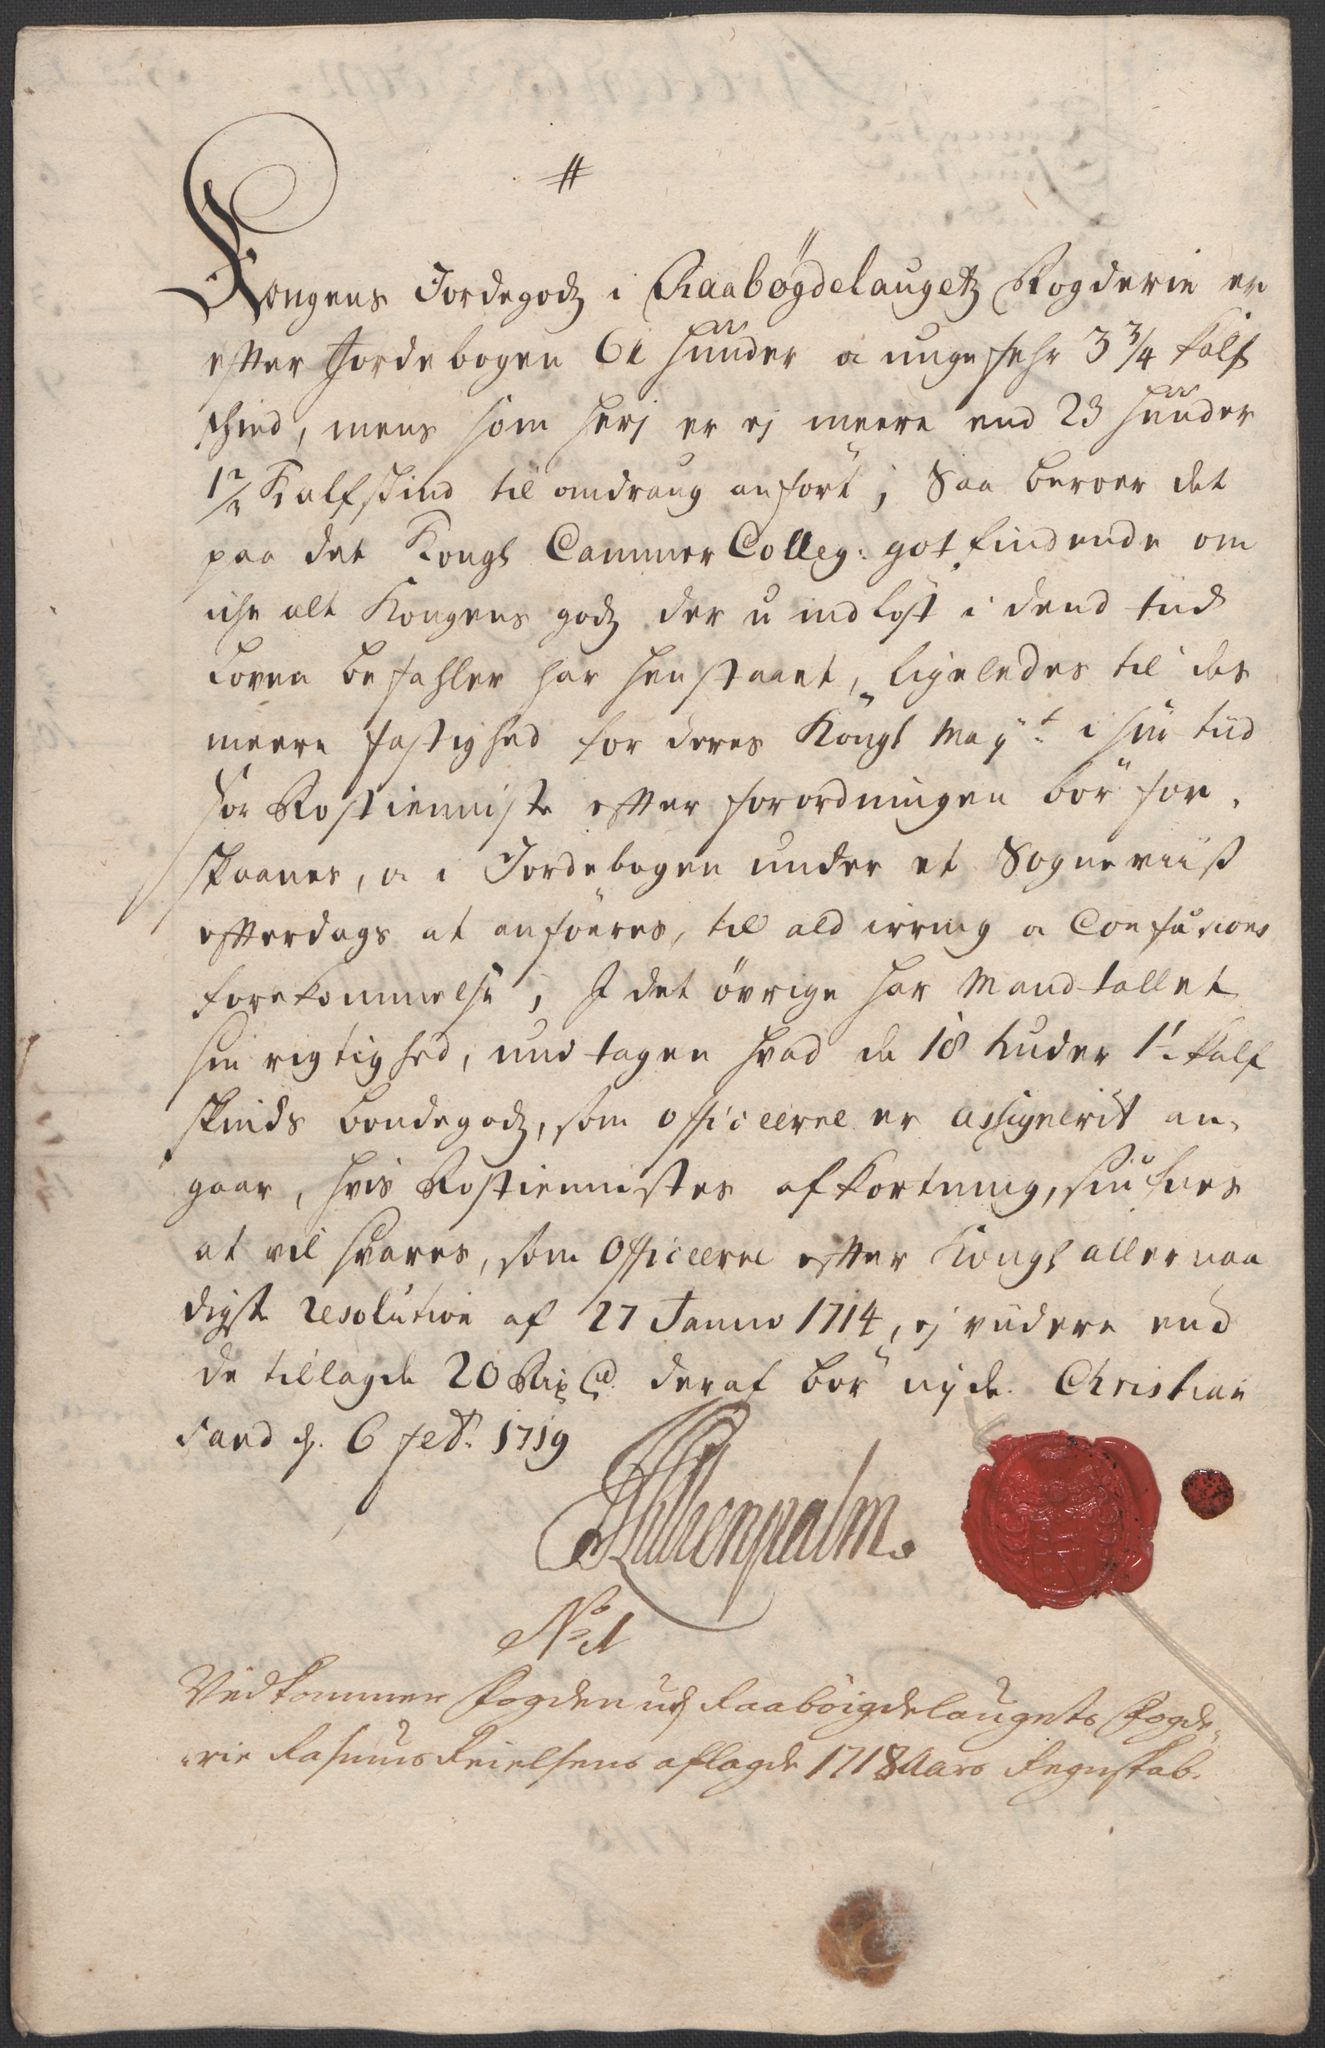 #
Kongens Jordegodz i Raabøgdelaugetz Fogderie er
efter Jordebogen 61 huuder a ungefehr 3 3/4 kalf
skind, mens som herj er ej meere end 23 huuder
1/2 Kalfskind til omdraug anført; Saa beroer det
paa det Kongl Cammer Colleg: got findende om
iche alt Kongens godz der u indløst i dend tiid
Loven befahler har henstaaet, ligeledes til des
meere fastighed for deres Kongl Mayt: i sin tiid
for Rostienniste efter forordningen bør for,
skaanes, a i Jordebogen under et Sogneviiss
efterdags at anføeres, til ald irring a Confusions
forekommelse, I det øvrige har Mandtallet
sin rigtighed, undtagen hvad de 18 huder 1 1/2 kalf
skinds bondegodz, som officeerne er assignerit an,
gaar, hvis Rostiennistes afkortning, siunes
at vil svares, som Officeerne efter Kongl allernaa
digste resolution af 27 Januo 1714, ej viidere end
de tillagde 20 Rixd. deraf bør nyde. Christian
sand d. 6 feb. 1719
Silkenpalm.
No 1
Vedkommer Fogden udj Raabøigdelaugets Fogde,
,rie Rasmus Keielsens aflagde 1718 Aars Regnskab.